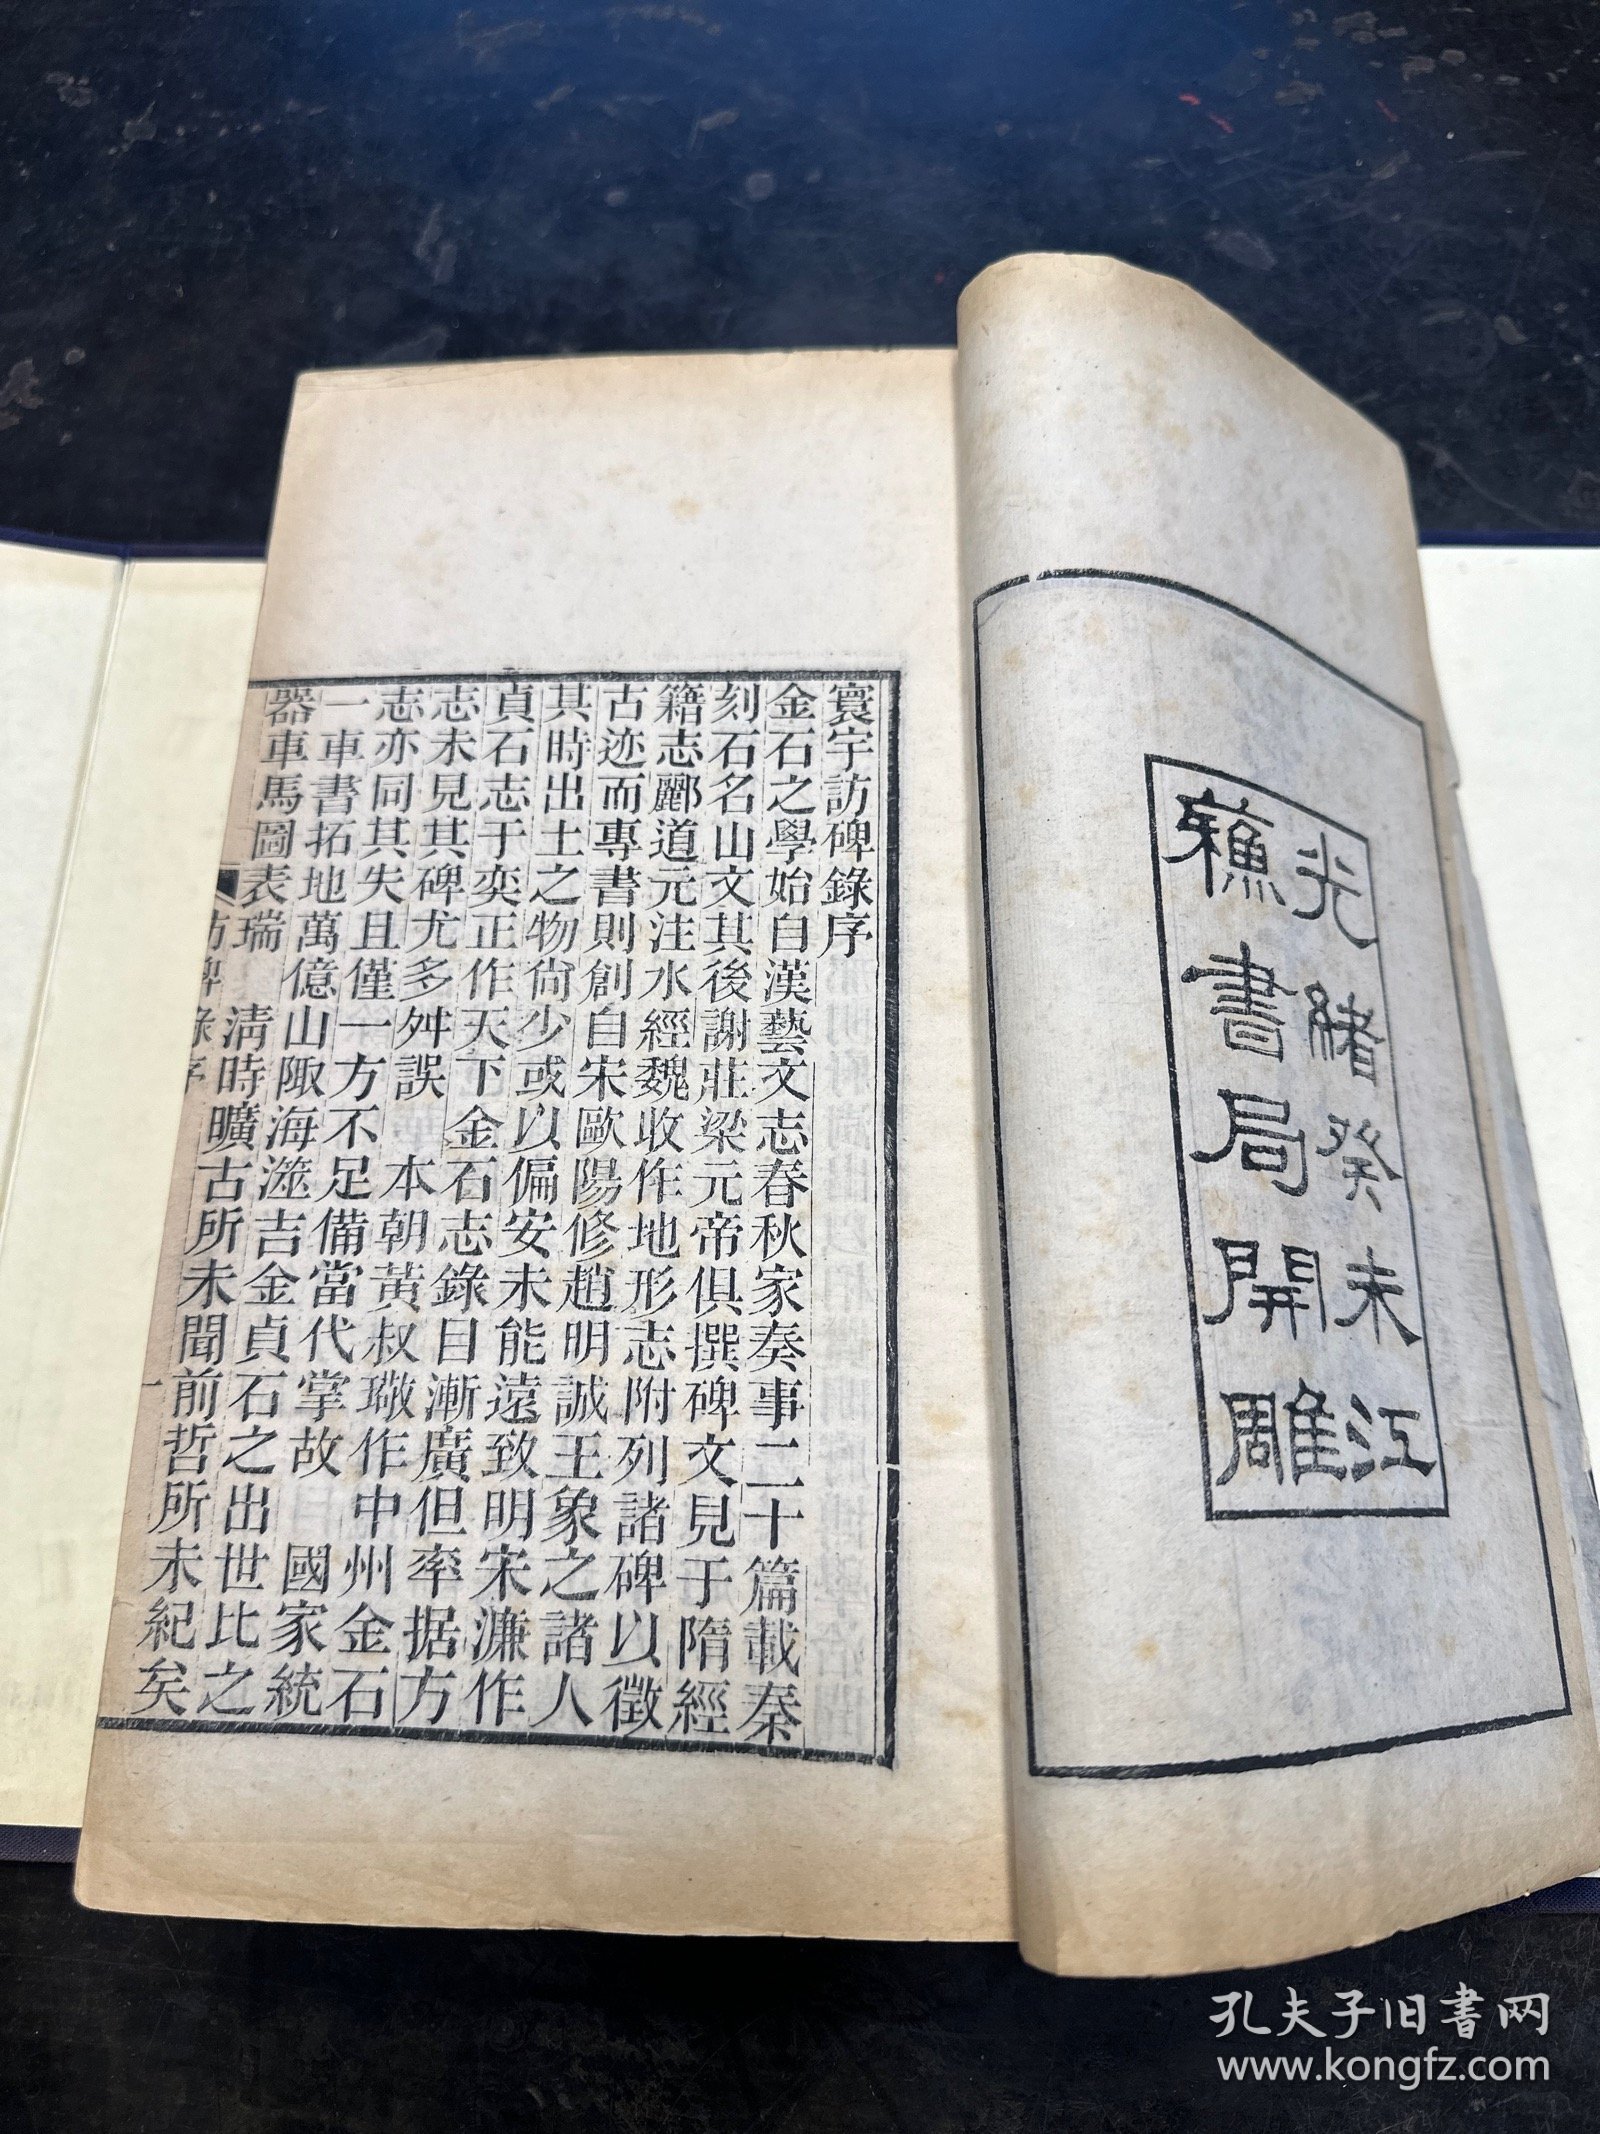 光緒癸未江
蘇書局開雕
寰宇訪碑錄序
金石之學始自漢藝文志春秋家奏事二十篇載秦
刻石名山文其後謝莊梁元帝俱撰碑文見于隋經
籍志酈道元注水經魏收作地形志附列諸碑以徵
古迹而專書則創自宋歐陽修趙明誠王象之諸人
其時出土之物尚少或以偏安未能遠致明宋濂作
貞石志于奕正作天下金石志錄目漸廣但率据方
志未見其碑尤多舛誤 本朝黃叔璥作中州金石
志亦同其失且僅一方不足備當代掌故 國家統
一車書拓地萬億山陬海澨吉金貞石之出世比之
器車馬圖表瑞 清時曠古所未聞前哲所未紀矣
訪碑錄序 一
孔夫子旧书网
www.kongfz.com